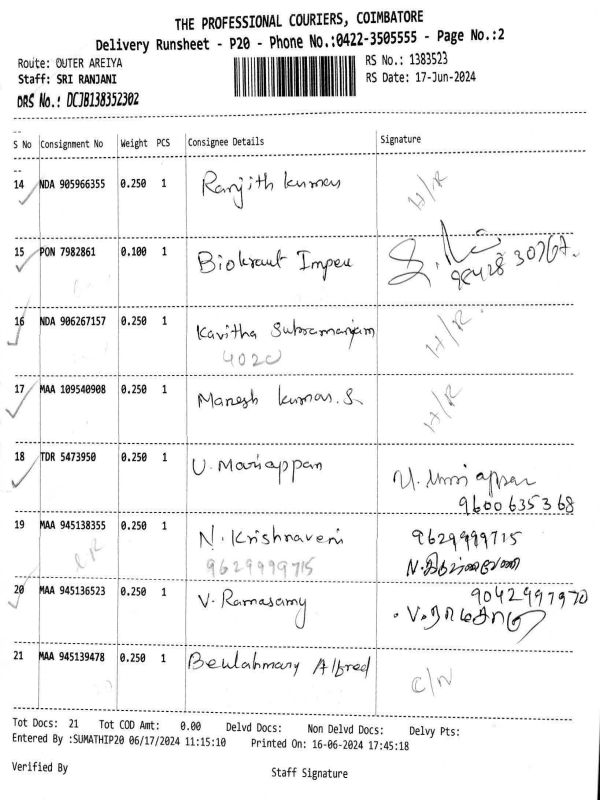 THE PROFESSIONAL COURIERS, COIMBATORE
Delivery Runsheet - P20 - Phone No.:0422-3505555 - Page No.:2
Route: OUTER AREIYA RS No.: 1383523
Staff: SRI RANJANI RS Date: 17-Jun-2024
DRS No.: DCJB138352302
S No Consignment No Weight PCS Consignee Details Signature
14 NDA 905966355 0.250 1 Ranjith kumar H/R
15 PON 7982861 0.100 1 Biokraut Impex
16 NDA 906267157 0.250 1 Kavitha Subramanyam H/R.
402
17 MAA 109540908 0.250 1 Manesh kumar. S. H/R
18 TDR 5473950 0.250 1 U. Mariappan U. Mariappan
9600635368
19 MAA 945138355 0.250 1 N. Krishnaveni 9629999715
9629999715 N.கிருஷ்ணவேணி
20 MAA 945136523 0.250 1 V. Ramasamy 9042997970
21 MAA 945139478 0.250 1 Beulahmary Alfred C/N
Tot Docs: 21 Tot COD Amt: 0.00 Delvd Docs: Non Delvd Docs: Delvy Pts:
Entered By :SUMATHIP20 06/17/2024 11:15:10 Printed On: 16-06-2024 17:45:18
Verified By Staff Signature